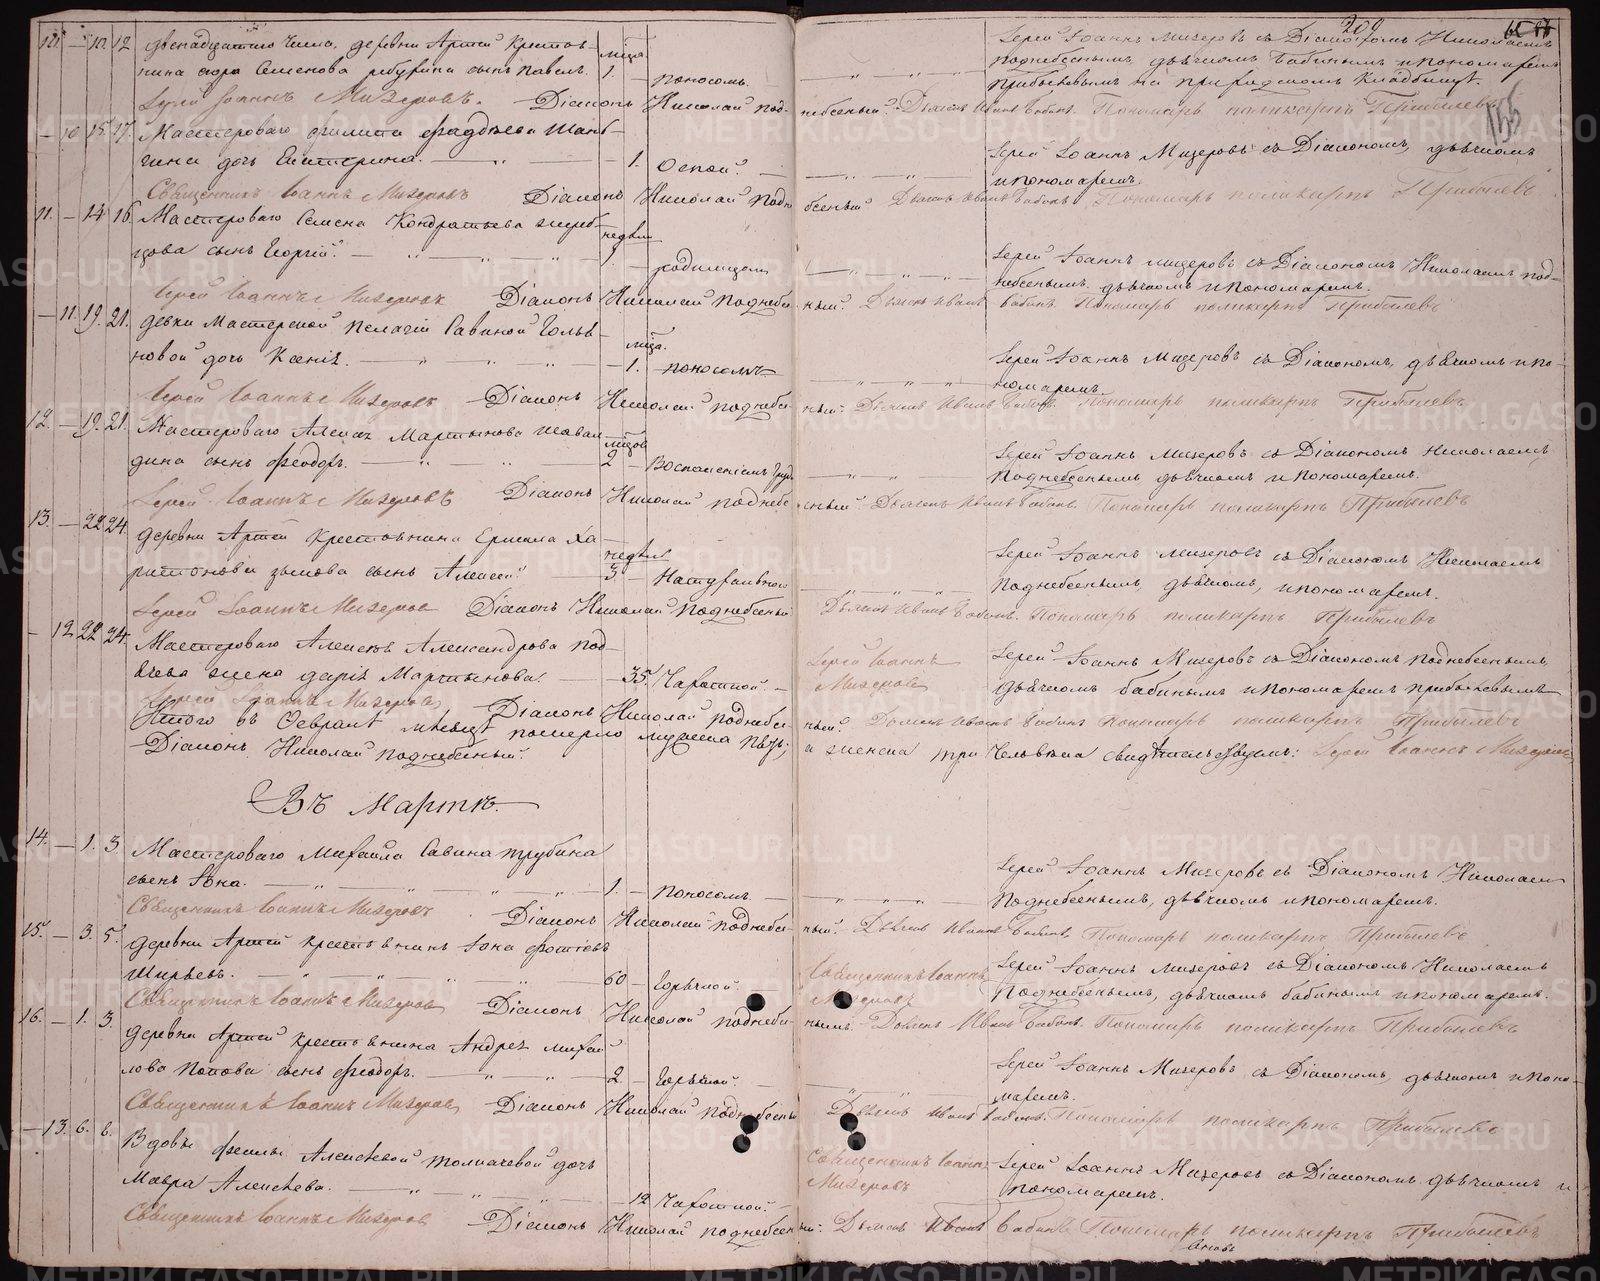 209
155
10 12 двенадцатаго числа, деревни Артей крестья-
нина сына Павелъ. 1. поносомъ.
Іерей Іоаннъ Мизеровъ съ Діакономъ Николаемъ
Поднебеснымъ, дьячкомъ Бабинымъ и пономаремъ
Прибылевымъ на приходскомъ кладбищѣ.
Іерей Іоаннъ Мизеровъ. Діаконъ Николай Поднебесный. Дьячекъ Иванъ Бабинъ. Пономарь Поликарпъ Прибылевъ
10 15 17. Мастероваго Филипа Фаддѣева
дочь Екатерина. 1. Оспой.
Іерей Іоаннъ Мизеровъ съ Діакономъ, дьячкомъ
и пономаремъ.
Священникъ Іоаннъ Мизеровъ Діаконъ Николай Поднебесный Дьячекъ Иванъ Бабинъ Пономарь Поликарпъ Прибылевъ
11. 14 16. Мастероваго Семена Кондратьева
сынъ Георгій. недѣли 1 родимцемъ
Іерей Іоаннъ Мизеровъ съ Діакономъ Николаемъ Под-
небеснымъ, дьячкомъ и пономаремъ.
Іерей Іоаннъ Мизеровъ Діаконъ Николай Поднебесный. Дьячекъ Иванъ Бабинъ Пономарь Поликарпъ Прибылевъ
11. 19. 21. девки Мастерской Пелагіи Савиной
дочь Ксенія. 1. поносомъ
Іерей Іоаннъ Мизеровъ съ Діакономъ, дьячкомъ и по-
номаремъ.
Іерей Іоаннъ Мизеровъ Діаконъ Николай Поднебесный. Дьячекъ Иванъ Бабинъ. Пономарь Поликарпъ Прибылевъ
12. 19. 21. Мастероваго Алексея Мартынова
сынъ Феодоръ. 2
Іерей Іоаннъ Мизеровъ съ Діакономъ Николаемъ
Поднебеснымъ дьячкомъ и пономаремъ.
Іерей Іоаннъ Мизеровъ Діаконъ Николай Поднебесный Дьячекъ Иванъ Бабинъ. Пономарь Поликарпъ Прибылевъ
13. 22 24. деревни Артей крестьянина Ермила Ха-
ритонова сынъ Алексей. недѣл. 3
Іерей Іоаннъ Мизеровъ съ Діакономъ Николаемъ
Поднебеснымъ, дьячкомъ, и пономаремъ.
Іерей Іоаннъ Мизеровъ Діаконъ Николай Поднебесный Дьячекъ Иванъ Бабинъ. Пономарь Поликарпъ Прибылевъ
12 22 24. Мастероваго Алексея Александрова
жена Дарія Мартынова. 35. Чахоткой.
Іерей Іоаннъ Мизеровъ
Іерей Іоаннъ Мизеровъ съ Діакономъ Поднебеснымъ
дьячкомъ Бабинымъ и пономаремъ Прибылевымъ
Іерей Іоаннъ Мизеровъ Діаконъ Николай Поднебесный. Дьячекъ Иванъ Бабинъ Пономарь Поликарпъ Прибылевъ
Итого въ Февралѣ мѣсяцѣ померло мужеска пять; а женска три человѣка свидѣтельствуемъ: Іерей Іоаннъ Мизеровъ
Діаконъ Николай Поднебесный.
Въ Мартѣ.
14. 1. 3. Мастероваго Михаила Савина Трубина
сынъ Іона. 1. поносомъ.
Іерей Іоаннъ Мизеровъ съ Діакономъ Николаемъ
Поднебеснымъ, дьячкомъ и пономаремъ.
Священникъ Іоаннъ Мизеровъ Діаконъ Николай Поднебесный. Дьячекъ Иванъ Бабинъ. Пономарь Поликарпъ Прибылевъ
15. 3. 5. деревни Артей крестьянинъ Іона
60 Горячкой.
Священникъ Іоаннъ Мизеровъ
Іерей Іоаннъ Мизеровъ съ Діакономъ Николаемъ
Поднебеснымъ, дьячкомъ Бабинымъ и пономаремъ.
Священникъ Іоаннъ Мизеровъ Діаконъ Николай Поднебесный. Дьячекъ Иванъ Бабинъ. Пономарь Поликарпъ Прибылевъ
16. 1. 3. деревни Артей крестьянина Андрея Михай
лова Попова сынъ Феодоръ. 2 Горячкой.
Іерей Іоаннъ Мизеровъ съ Діакономъ, дьячкомъ и поно-
маремъ.
Священникъ Іоаннъ Мизеровъ Діаконъ Николай Поднебесный Дьячекъ Иванъ Бабинъ. Пономарь Поликарпъ Прибылевъ
13. 6. 8. Вдовы Феклы Алексѣевой Толмачевой дочь
Мавра Алексѣева. 12 Чахоткой.
Священникъ Іоаннъ Мизеровъ
Іерей Іоаннъ Мизеровъ съ Діакономъ дьячкомъ и
пономаремъ.
Священникъ Іоаннъ Мизеровъ Діаконъ Николай Поднебесный. Дьячекъ Иванъ Бабинъ Пономарь Поликарпъ Прибылевъ
METRIKI.GASO-URAL.RU